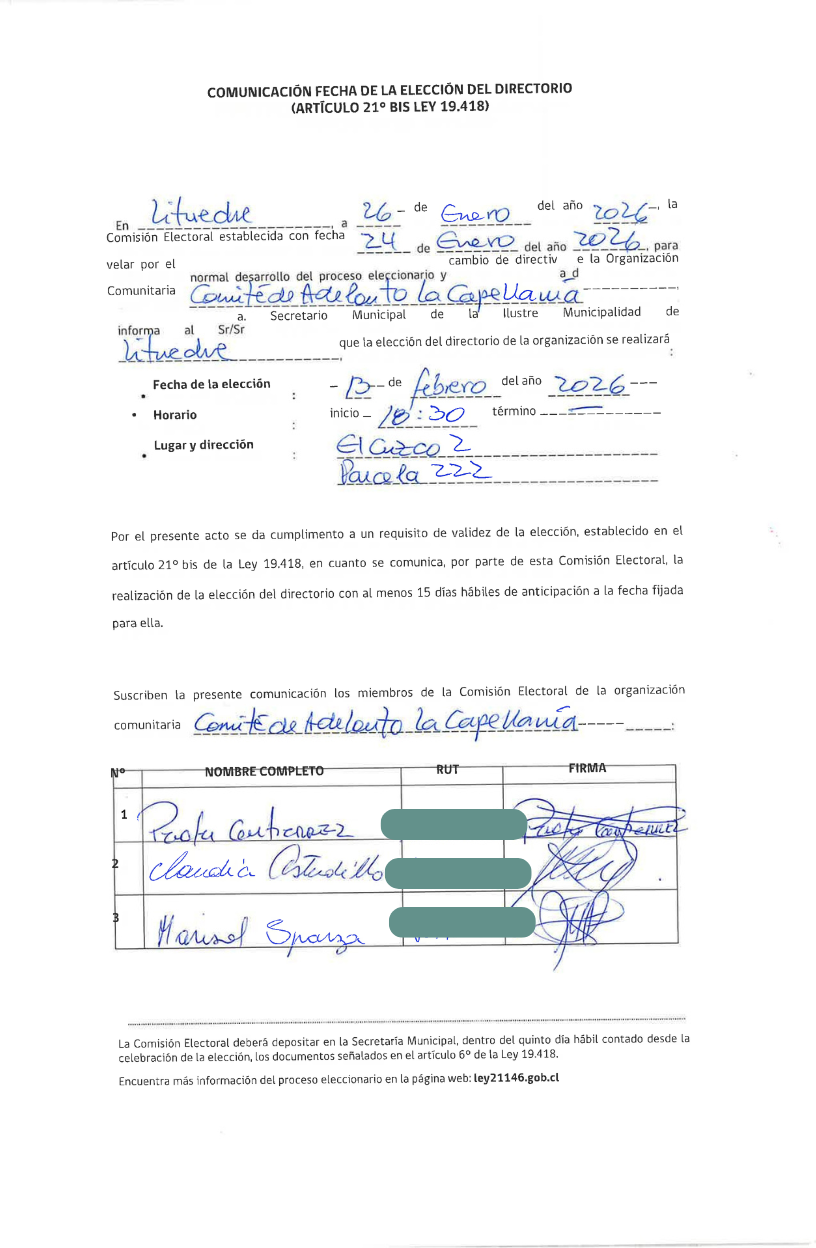 COMUNICACIÓN FECHA DE LA ELECCIÓN DEL DIRECTORIO
(ARTÍCULO 21º BIS LEY 19.418)
En Litueche, a 26 - de Enero del año 2026 -, la
Comisión Electoral establecida con fecha 24 de Enero del año 2026, para
velar por el normal desarrollo del proceso eleccionario y cambio de directiv a_d e la Organización
Comunitaria Comité de Adelanto La Capellania
informa al Sr/Sr a. Secretario Municipal de la Ilustre Municipalidad de
Litueche, que la elección del directorio de la organización se realizará :
• Fecha de la elección : - 13 - de febrero del año 2026 ---
• Horario : inicio - 18:30 término ---
• Lugar y dirección : El Cuzco 2
Parcela 222
Por el presente acto se da cumplimento a un requisito de validez de la elección, establecido en el
artículo 21º bis de la Ley 19.418, en cuanto se comunica, por parte de esta Comisión Electoral, la
realización de la elección del directorio con al menos 15 días hábiles de anticipación a la fecha fijada
para ella.
Suscriben la presente comunicación los miembros de la Comisión Electoral de la organización
comunitaria Comité de Adelanto La Capellanía ----- _____:
Nº NOMBRE COMPLETO RUT FIRMA
1 Gutierrez
2 Claudia Astudillo
3 Marisol Sparza
La Comisión Electoral deberá depositar en la Secretaria Municipal, dentro del quinto día hábil contado desde la
celebración de la elección, los documentos señalados en el artículo 6º de la Ley 19.418.
Encuentra más información del proceso eleccionario en la página web: ley21146.gob.cl